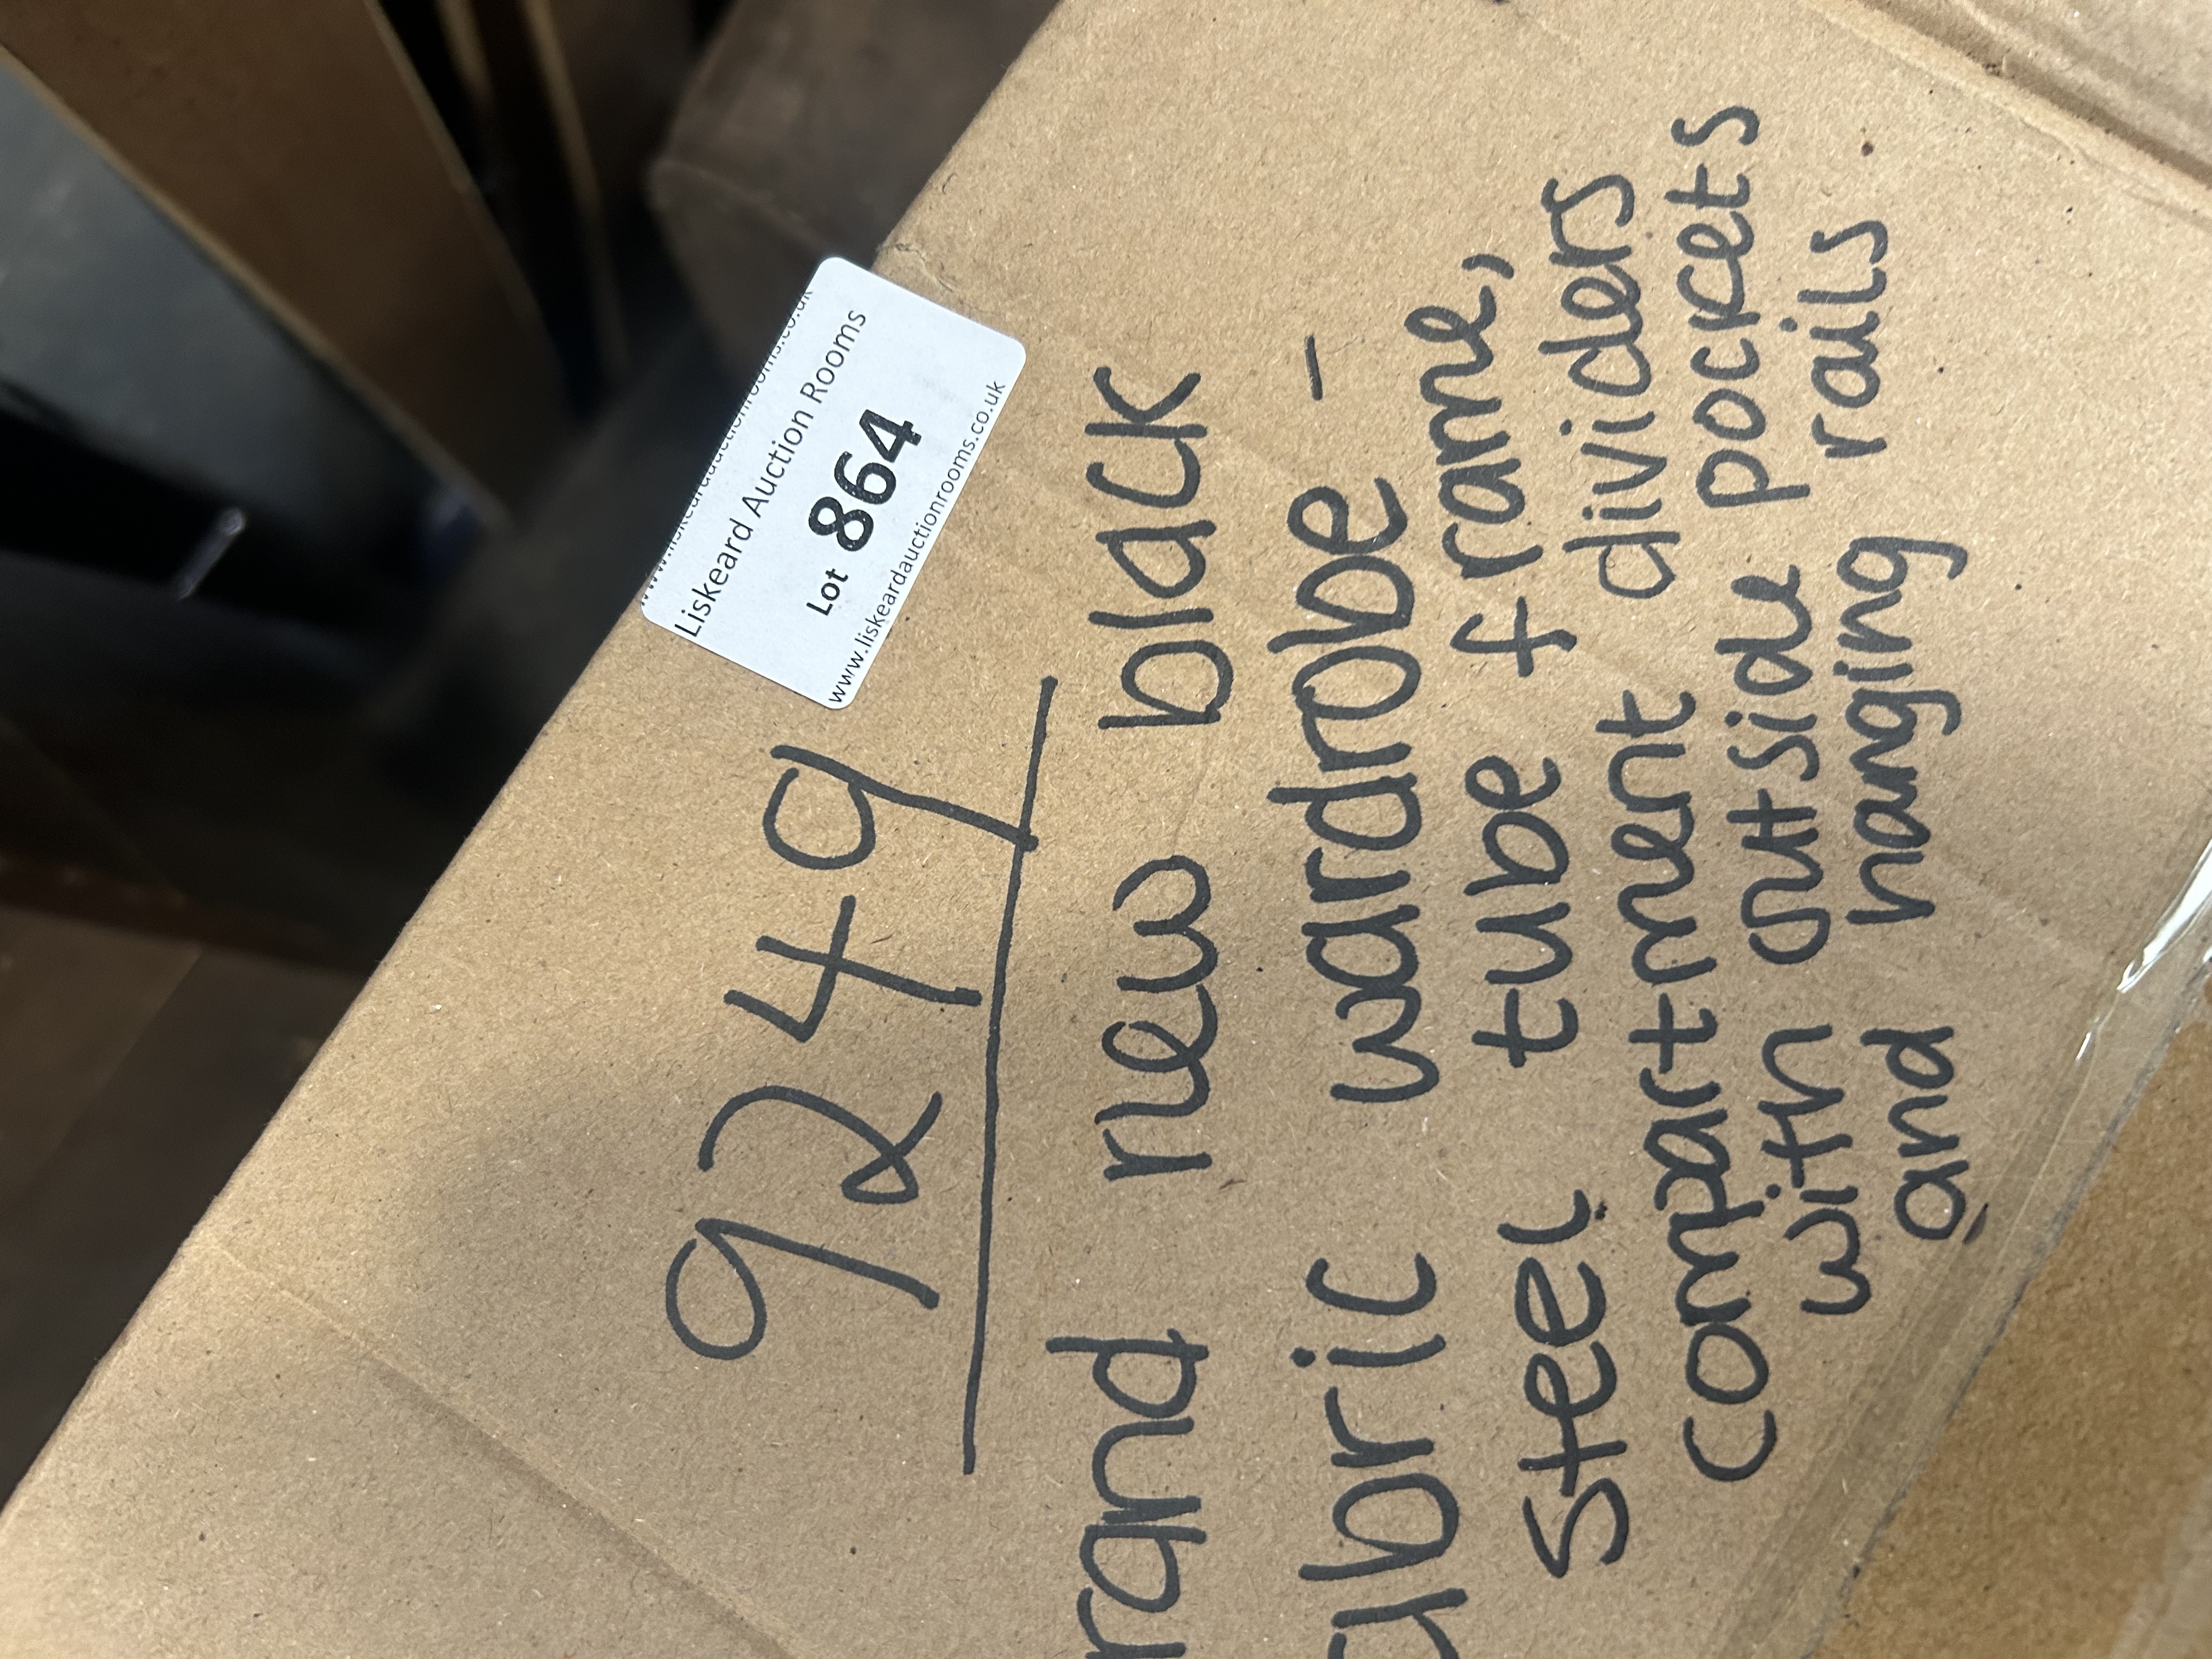 www.liskeardauctionrooms.co.uk
Liskeard Auction Rooms
Lot 864
www.liskeardauctionrooms.co.uk
9249
rand new black
abric wardrobe -
Steel tube frame,
compartment dividers
with outside pockets
and hanging rails.